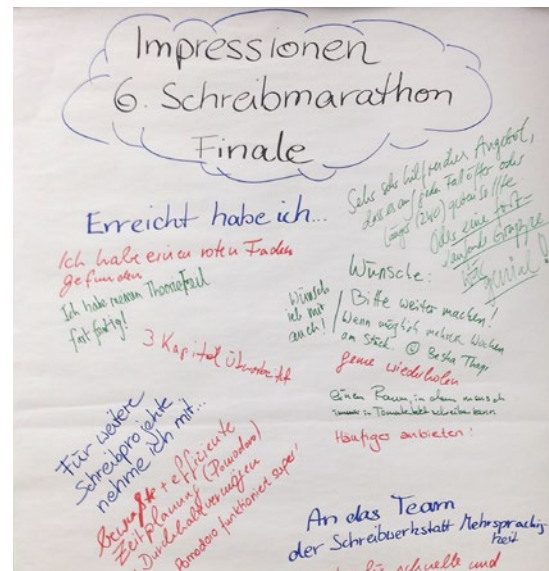 Impressionen
6. Schreibmarathon
Finale
Erreicht habe ich...
Ich habe einen roten Faden
gefunden
Ich habe meinen
fast fertig!
3 Kapitel überarbeitet
Sehr sehr hilfreiches Angebot,
dass es auf jeden Fall öfter oder
länger geben sollte.
Oder eine fort-
laufende Gruppe
wär
genial!
Wünsche:
Bitte weiter machen!
Wenn möglich mehrere Wochen
am Stück. ☺ Besten
Wünsch
ich mir
auch!
gerne wiederholen
einen Raum, in dem mensch
immer in schreiben kann
Häufiges anbieten!
Für weitere
Schreibprojekte
nehme ich mit...
bewusste + effiziente
Zeitplanung (Pomodoro)
Durchhaltevermögen
Pomodoro funktioniert super!
An das Team
der Schreibwerkstatt Mehrsprachig-
keit
für schnelle und